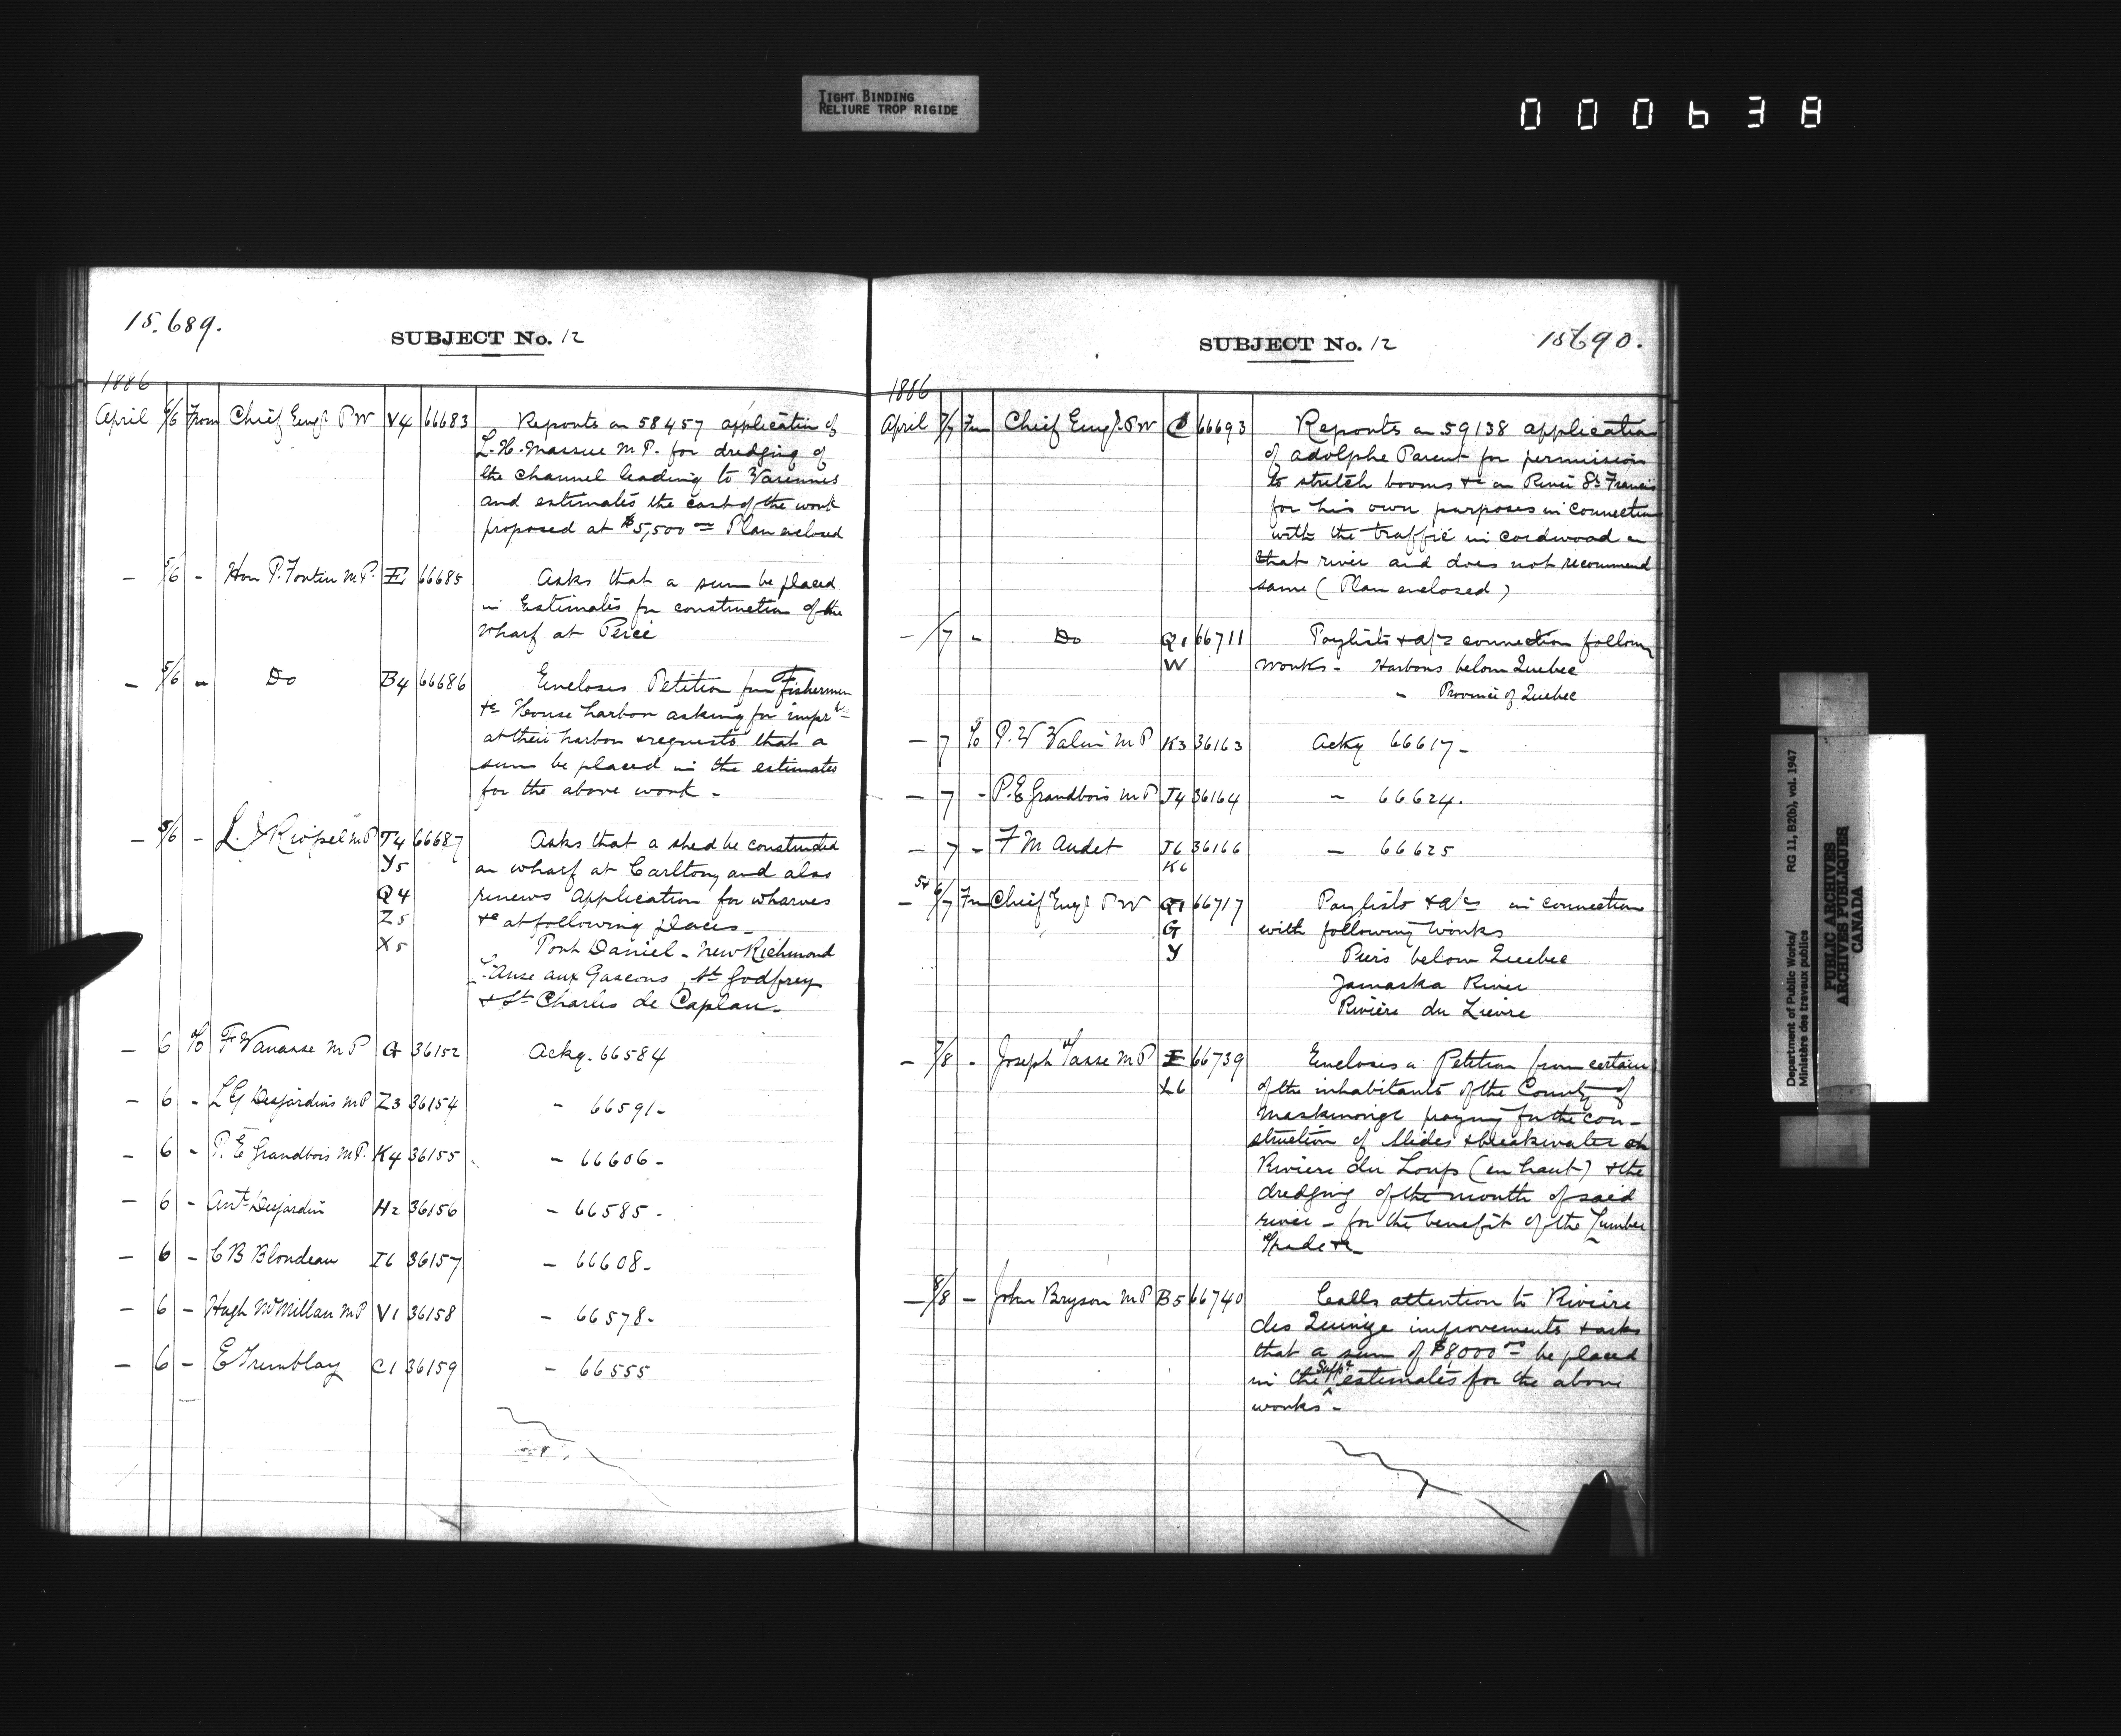 TIGHT BINDING
RELIURE TROP RIGIDE
000638
15.689.
SUBJECT No. 12
1886
April 6/6 From Chief Engr P W V4 66683 Reports on 58457 application of
L. H. Massue M.P. for dredging of
the channel leading to Varennes
and estimates the cost of the work
proposed at $5,500 00 Plan enclosed
— 5/6 - Hon P. Fortin M.P. E1 66685 Asks that a sum be placed
in Estimates for construction of the
wharf at Percé
— 5/6 - Do B4 66686 Encloses Petition from Fishermen
&c House harbor asking for imprts
at their harbor & requests that a
sum be placed in the estimates
for the above work -
— 5/6 - L. J. Riopel M P T4 66687 Asks that a shed be constructed
Y5 on wharf at Carlton, and also
Q4 renews application for wharves
Z5 &c at following places -
X5 Port Daniel - New Richmond
L'Anse aux Gascons, St Godfrey
& St Charles de Caplan -
— 6 To F Vanasse M P G 36152 Ackg. 66584
— 6 - L G Desjardins M P Z3 36154 - 66591 -
— 6 - P. E Grandbois M.P. K4 36155 - 66606 -
— 6 - Ant. Desjardin H2 36156 - 66585 -
— 6 - C B Blondeau I6 36157 - 66608 -
— 6 - Hugh McMillan M P V1 36158 - 66578 -
— 6 - E Tremblay C1 36159 - 66555
15690.
SUBJECT No. 12
1886
April 7/7 Fm Chief Engr. P W 66693 Reports on 59138 application
of Adolphe Parent for permission
to stretch booms &c on River St Francis
for his own purposes in connection
with the traffic in cordwood on
that river and does not recommend
same (Plan enclosed)
— /7 - Do Q1 66711 Paylists & a/cs connection following
W works - Harbors below Quebec
" Province of Quebec
— 7 To P. V Valin M P K3 36163 Ackg 66617 -
— 7 - P. E Grandbois M P J4 36164 - 66624.
— 7 - F M Audet J6 36166 - 66625
K6
— 5 & 6/7 Fm Chief Engr P W Q1 66717 Paylists & a/cs in connection
G with following works
Y Piers below Quebec
Yamaska River
Rivière du Lièvre
— 7/8 - Joseph Tasse M P I 66739 Encloses a Petition from certain
L6 of the inhabitants of the County of
Maskinongé praying for the con-
struction of slides & breakwater on
Riviere du Loup (en haut) & the
dredging of the mouth of said
river - for the benefit of the Lumber
Trade &c -
— 8/8 - John Bryson M P B5 66740 Calls attention to Rivière
des Quinze improvements & asks
that a sum of $8000 00 be placed
in the Supp. estimates for the above
works -
Department of Public Works/ RG 11, B2(b), vol. 1947
Ministère des travaux publics
PUBLIC ARCHIVES
ARCHIVES PUBLIQUES
CANADA